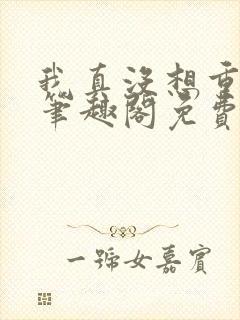 我真没想重
笔趣阁免费
一号女嘉宾